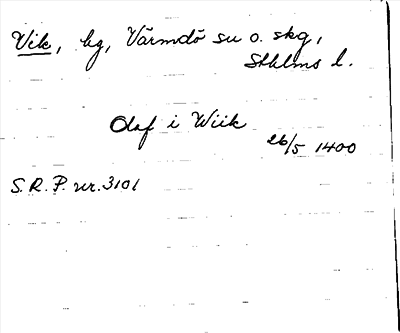 Vik, hg, Värmdö su o. skg,
Sthlms l.
Olaf i Wiik
26/5 1400
S.R.P. nr. 3101